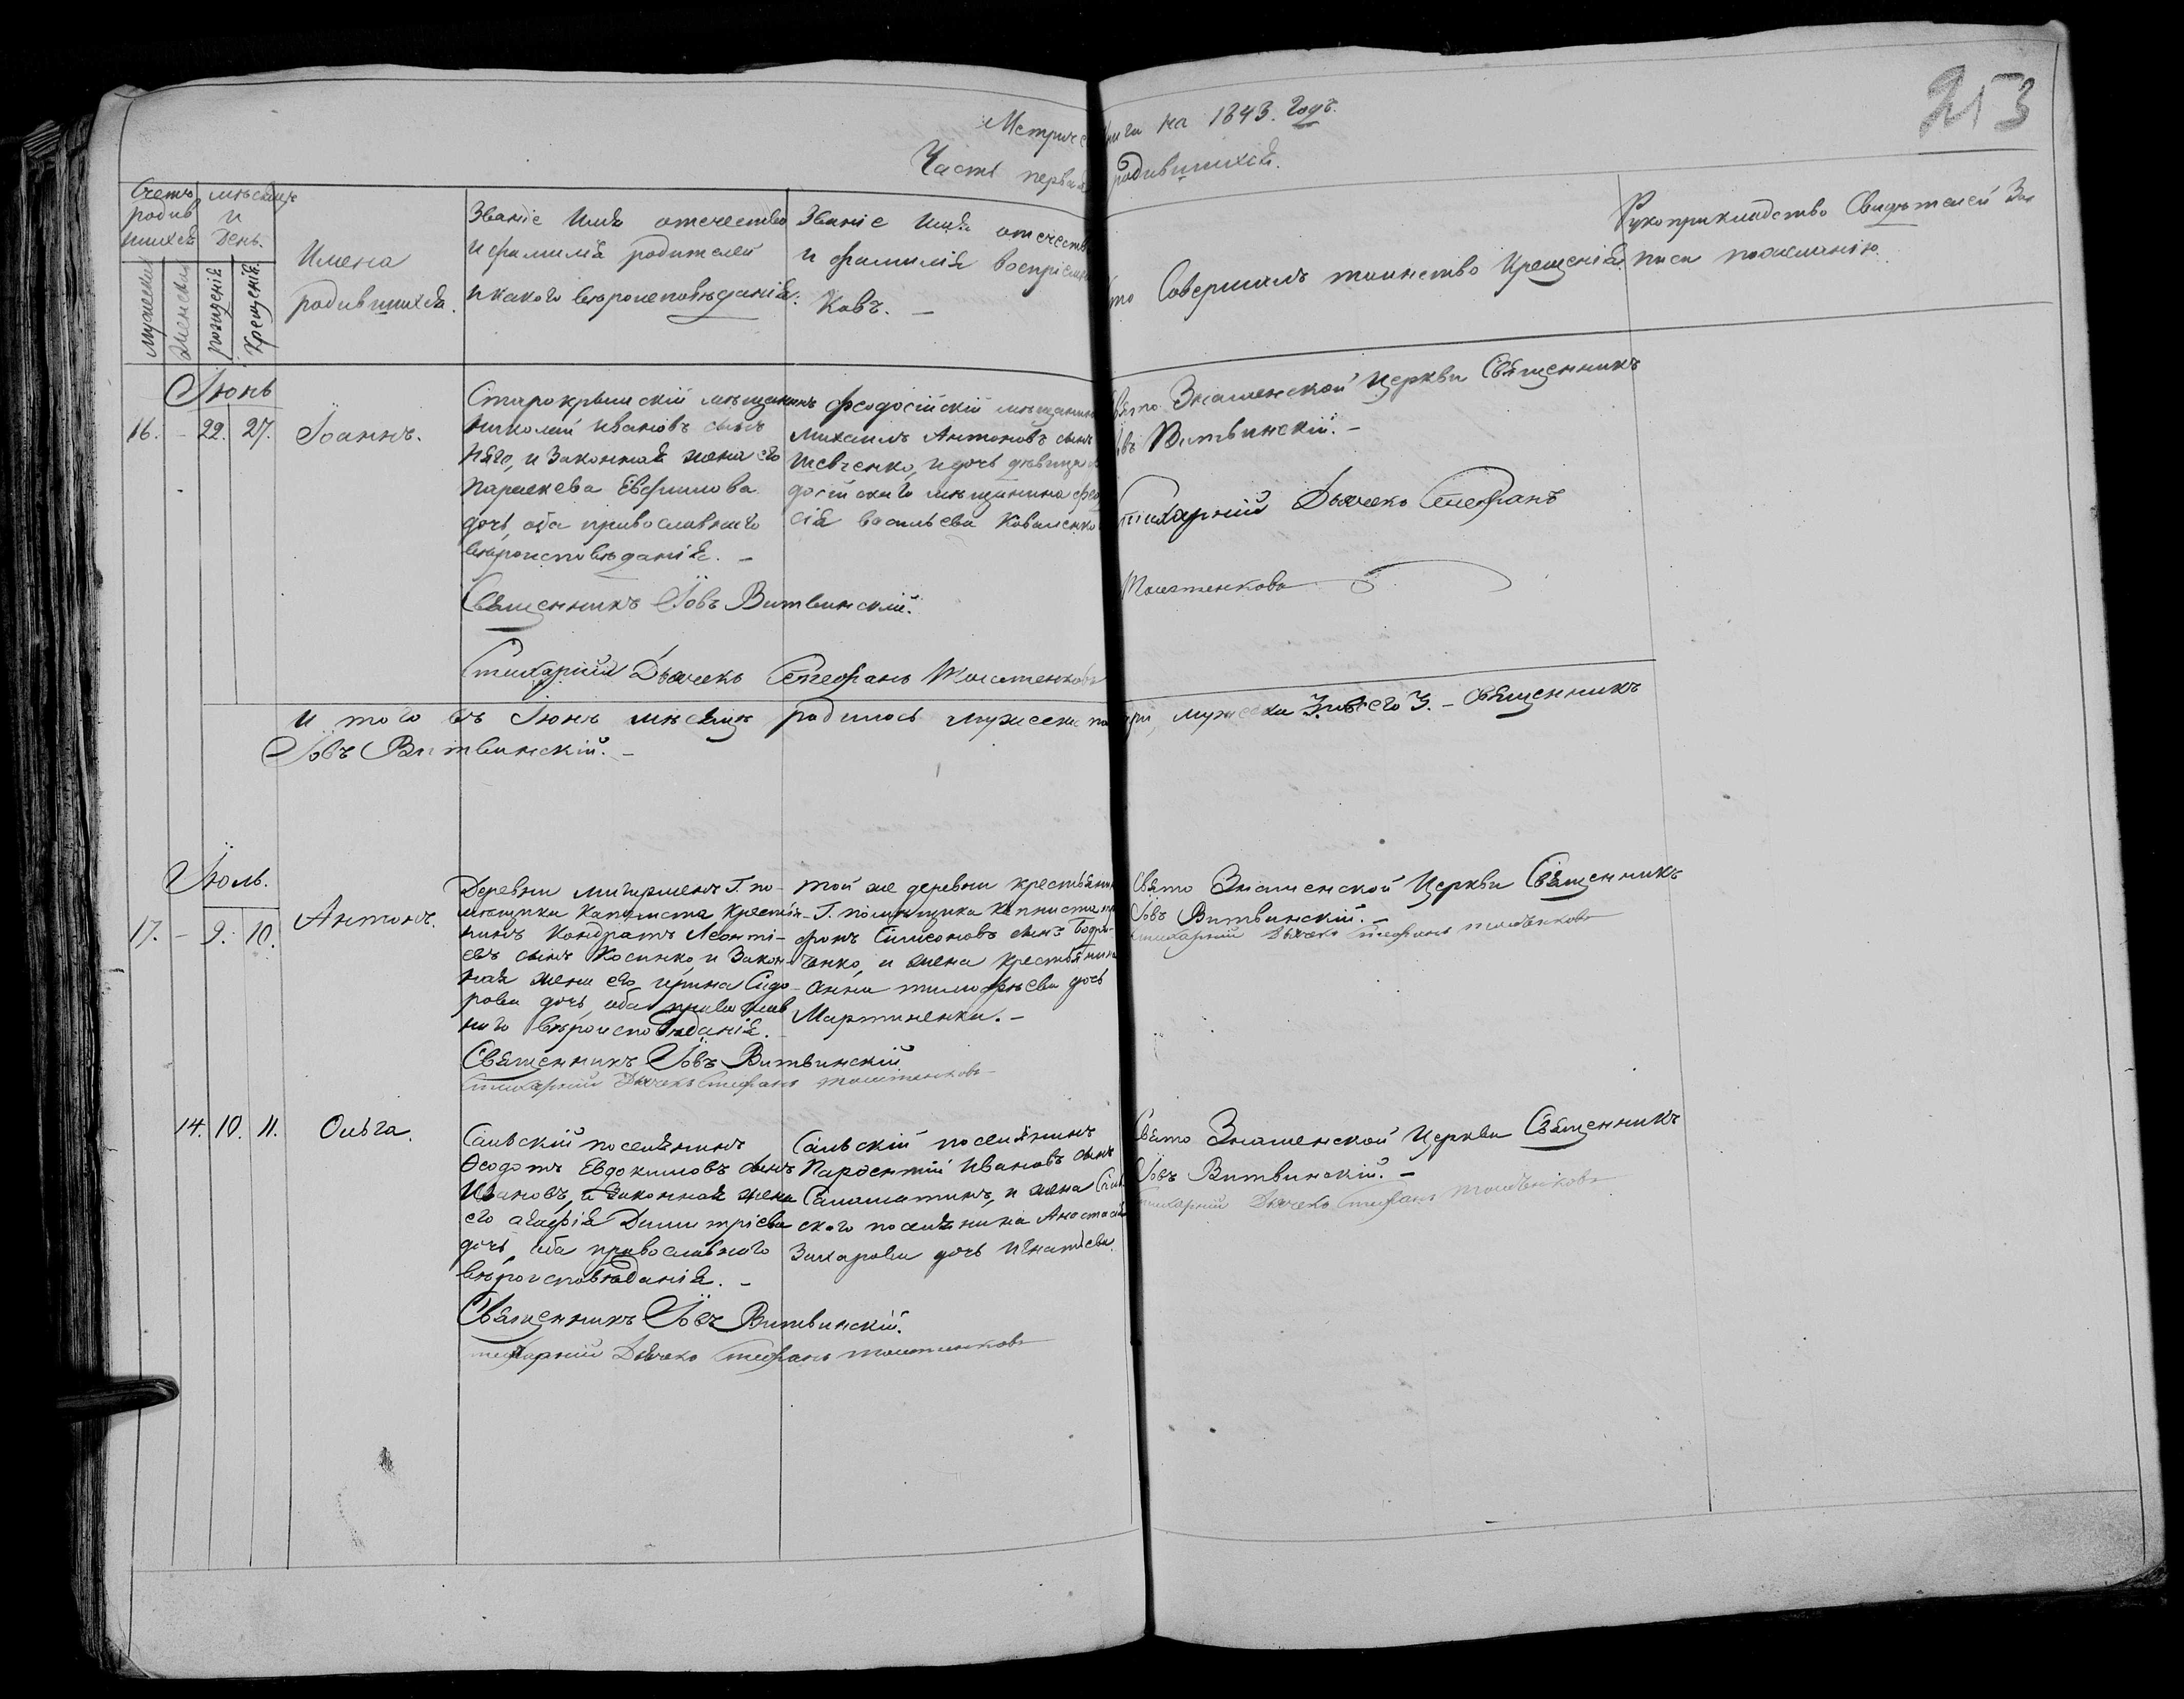 253
Метриче книга на 1843. Годъ.
Часть первая родившихся.
Счетъ родив шихся
мѣсяцъ и день.
Мужеска
Женска
рожденія
Крещенія
Имена
родившихся.
Званіе Имя отечество
и фамилія родителей
и какого вѣроисповѣданія.
Званіе Имя отечеств
и фамилія воспріемни
ковъ. –
то Совершалъ таинство Крещенія.
Рукоприкладство Свидѣтелей За
писи пожеланію.
Іюнь
16. – 22. 27. Іоаннъ.
Старокрымскій мѣщанинъ
николай ивановъ сынъ
и Законная жена его
параскева Евфимова
дочь, оба православнаго
вѣроисповѣданія. –
Священникъ Іовъ Витвинскій.
Стихарный Дьячекъ Стефанъ
феодосійскій мѣщанинъ
михаилъ Антоновъ сынъ
шевченко, и дочь дѣвица
досійскаго мѣщанина фео
сія васильева Коваленко
вято Знаменской Церкви Священникъ
овъ Витвинскій. –
Стихарный Дьячекъ Стефанъ
и того въ Іюнѣ мѣсяцѣ родилось мужеска по три, мужеска 3. всего 3. – Священникъ
Іовъ Витвинскій. –
Іюль.
17. – 9. 10. Антонъ.
Деревни г. по-
мѣщика Капниста Крестья-
нинъ Кондратъ Леонті-
евъ сынъ Косинко, и Закон-
ная жена его, ирина Сидо-
рова дочь, оба православ
наго вѣроисповѣданія.
Священникъ Іовъ Витвинскій
Стихарный Дьячекъ Стефанъ
той же деревни крестьянин
Г. помѣщика Капниста
Симеоновъ сынъ Бодри-
енко, и жена Крестьянина
Анна тимофѣева дочь
Мартиненка. –
Свято Знаменской Церкви Священникъ
Іовъ Витвинскій. –
Стихарный Дьячекъ Стефанъ
14. 10. 11. Ольга.
Сальскій поселянинъ
Ѳеодотъ Евдокимовъ сынъ
Ивановъ, и Законная жена
его агафія Димитріева
дочь, оба православнаго
вѣроисповѣданія. –
Священникъ Іовъ Витвинскій.
Стихарный Дьячекъ Стефанъ
Сальскій поселянинъ
Парфентій Ивановъ сынъ
Саламатинъ, и жена Саль
скаго поселянина Анастасія
Захарова дочь игнатьева.
Свято Знаменской Церкви Священникъ
Іовъ Витвинскій. –
Стихарный Дьячекъ Стефанъ